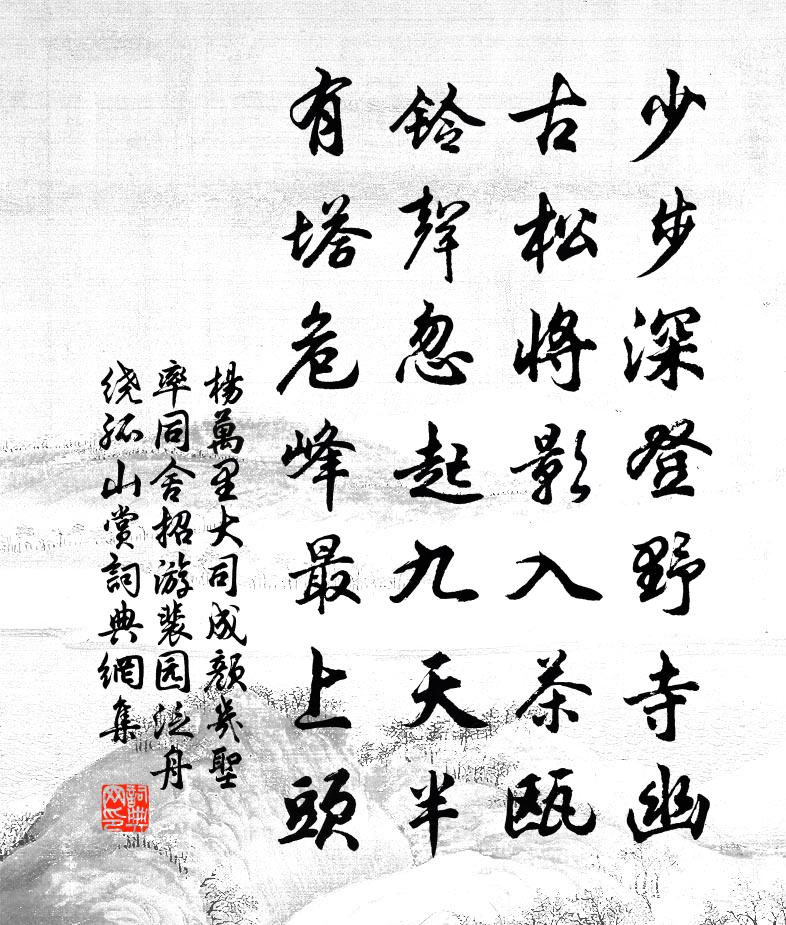 少步深登野寺幽
古松將影入茶瓯
鈴聲忽起九天半
有塔危峰最上頭
楊萬里大司成顏幾聖
率同舍招游裴园泛舟
绕孤山賞詞典網集